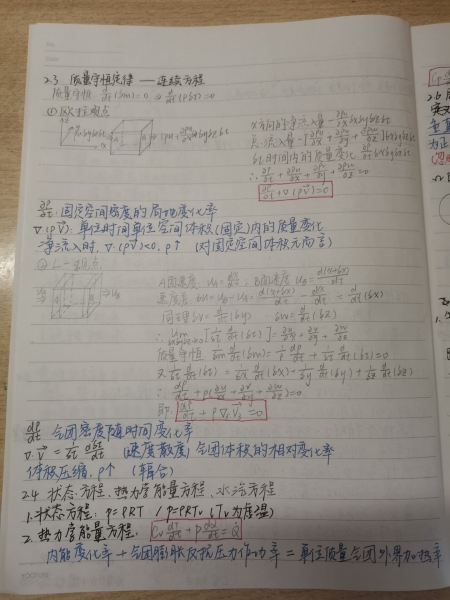 2.3 质量守恒定律 —— 连续方程
质量守恒: d/dt(δm)=0 ⇒ d/dt(ρδτ)=0
① 欧拉观点
x方向的净流入量 -∂ρu/∂x δxδyδzδt
总流入量 -[∂ρu/∂x + ∂ρv/∂y + ∂ρw/∂z]δxδyδzδt
δt时间内的质量变化 ∂ρ/∂t δxδyδzδt
∴ ∂ρ/∂t + ∂ρu/∂x + ∂ρv/∂y + ∂ρw/∂z = 0
∂ρ/∂t + ∇·(ρV⃗)=0
∂ρ/∂t: 固定空间密度的局地变化率
∇·(ρV⃗): 单位时间单位空间体积(固定)内的质量变化
净流入时, ∇·(ρV⃗)<0, ρ↑ (对固定空间体积元而言)
A面速度: uA=dx/dt, B面速度 uB=d(x+δx)/dt
速度差 δu=uB-uA= d(x+δx)/dt - dx/dt = d/dt(δx)
同理 δv=d/dt(δy) δw=d/dt(δz)
∴ lim [1/δτ d/dt(δτ)] = ∂u/∂x + ∂v/∂y + ∂w/∂z
质量守恒 1/δm d/dt(δm)= 1/ρ dρ/dt + 1/δτ d/dt(δτ)=0
又 1/δτ d/dt(δτ) = 1/δx d/dt(δx) + 1/δy d/dt(δy) + 1/δz d/dt(δz)
∴ dρ/dt + ρ(∂u/∂x + ∂v/∂y + ∂w/∂z)=0
即: dρ/dt + ρ∇·V⃗₃ =0
dρ/dt 气团密度随时间变化率
∇·V⃗ = 1/δτ dδτ/dt (速度散度) 气团体积的相对变化率
体积压缩, ρ↑ (辐合)
2.4 状态方程、热力学能量方程、水汽方程
1. 状态方程: p=ρRT / p=ρRTv (Tv为虚温)
2. 热力学能量方程: Cv dT/dt + p dα/dt = Q̇
内能变化率 + 气团膨胀反抗压力作功率 = 单位质量气团外界加热率